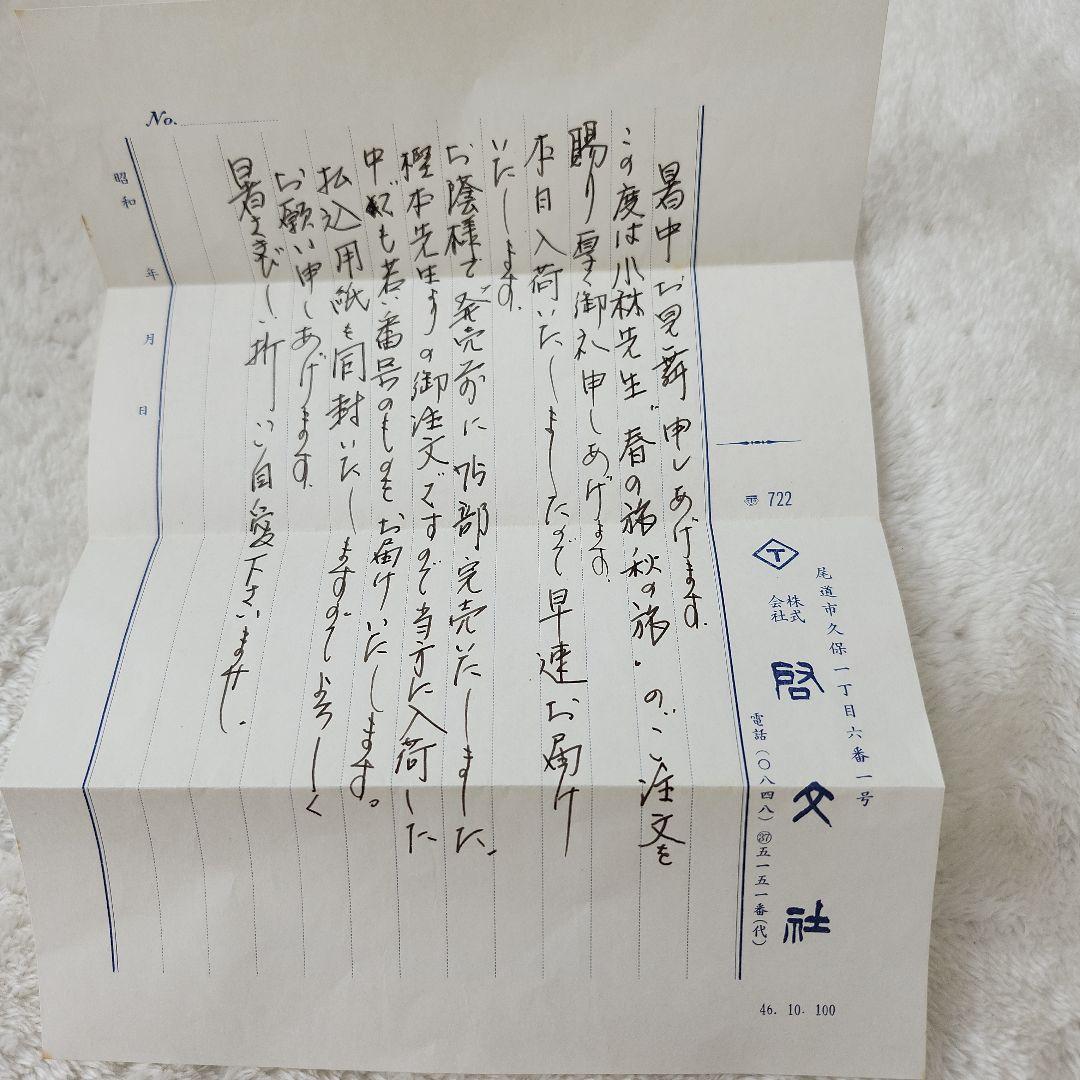 〒 722
尾道市久保一丁目六番一号
株式会社
啓文社
電話(〇八四八)㊲五一五一番(代)
46. 10. 100
暑中お見舞申しあげます。
この度は小林先生"春の旅秋の旅"のご注文を
賜り厚く御礼申しあげます。
本日入荷いたしましたので早速お届け
いたします。
お陰様で発売前に75部完売いたしました。
樫本先生よりの御注文ですので当方に入荷した
中でも若い番号のものをお届けいたします。
払込用紙も同封いたしますのでよろしく
お願い申しあげます。
暑さきびしい折、ご自愛下さいませ。
No.
昭和 年 月 日